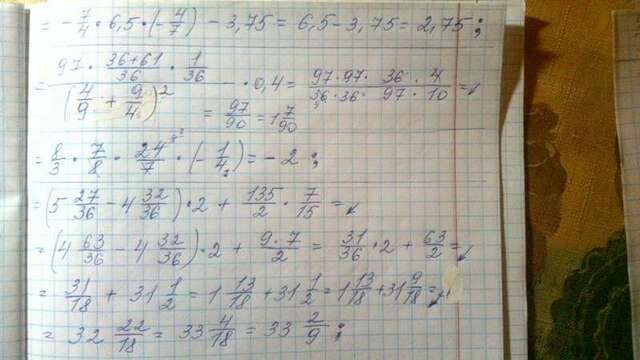 = -7/4 · 6,5 · (-4/7) - 3,75 = 6,5 - 3,75 = 2,75 ;
= (97 · (36+61)/36 · 1/36) / (4/9 + 9/4)² · 0,4 = (97·97)/(36·36) · 36/97 · 4/10 =
= 97/90 = 1 7/90
= 8/3 · 7/8 · 24/7 · (-1/4) = -2 ;
= (5 27/36 - 4 32/36) · 2 + 135/2 · 7/15 =
= (4 63/36 - 4 32/36) · 2 + (9·7)/2 = 31/36 · 2 + 63/2 =
= 31/18 + 31 1/2 = 1 13/18 + 31 1/2 = 1 13/18 + 31 9/18 =
= 32 22/18 = 33 4/18 = 33 2/9 ;